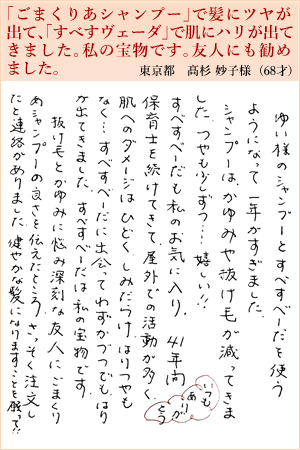 「ごまくりあシャンプー」で髪にツヤが
出て、「すべすべヴェーダ」で肌にハリが出て
きました。私の宝物です。友人にも勧め
ました。
東京都　髙杉 妙子様（68才）
ゆい様のシャンプーとすべすべーだを使う
ようになって一年がすぎました。
シャンプーはかゆみや抜け毛が減ってきま
した。つやも少しずつ…嬉しい!!
すべすべーだも私のお気に入り。41年間
保育士を続けてきて、屋外での活動が多く、
肌へのダメージはひどく、しみだらけ、はりつやも
なく…すべすべーだに出会ってわずかづつでもはり
が出てきました。すべすべーだは私の宝物です。
抜け毛とかゆみに悩み深刻な友人にごまくり
あシャンプーの良さを伝えたところ、さっそく注文し
たと連絡がありました。健やかな髪になりますことを願って!!
いつも
ありが
とう